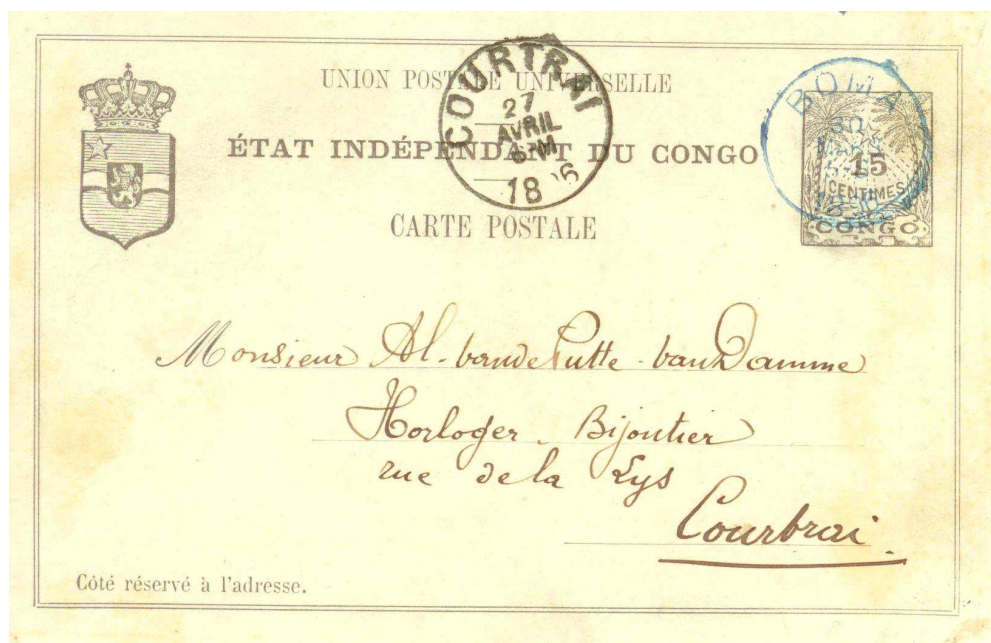 UNION POSTALE UNIVERSELLE
ÉTAT INDÉPENDANT DU CONGO
CARTE POSTALE
COURTRAI
27
AVRIL
18 6
BOMA
15
CENTIMES
CONGO
Monsieur Al. vandePutte-vanDamme
Horloger-Bijoutier
rue de la Lys
Courtrai.
Côté réservé à l'adresse.